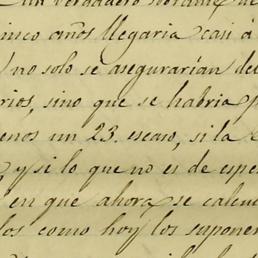 un verdadero
cinco años llegaria casi á
no solo se asegurarían de
rios, sino que se habria
enos un 23. escaso, si la
y si lo que no es de esper
en que ahora se calcu
los como hoy los suponen